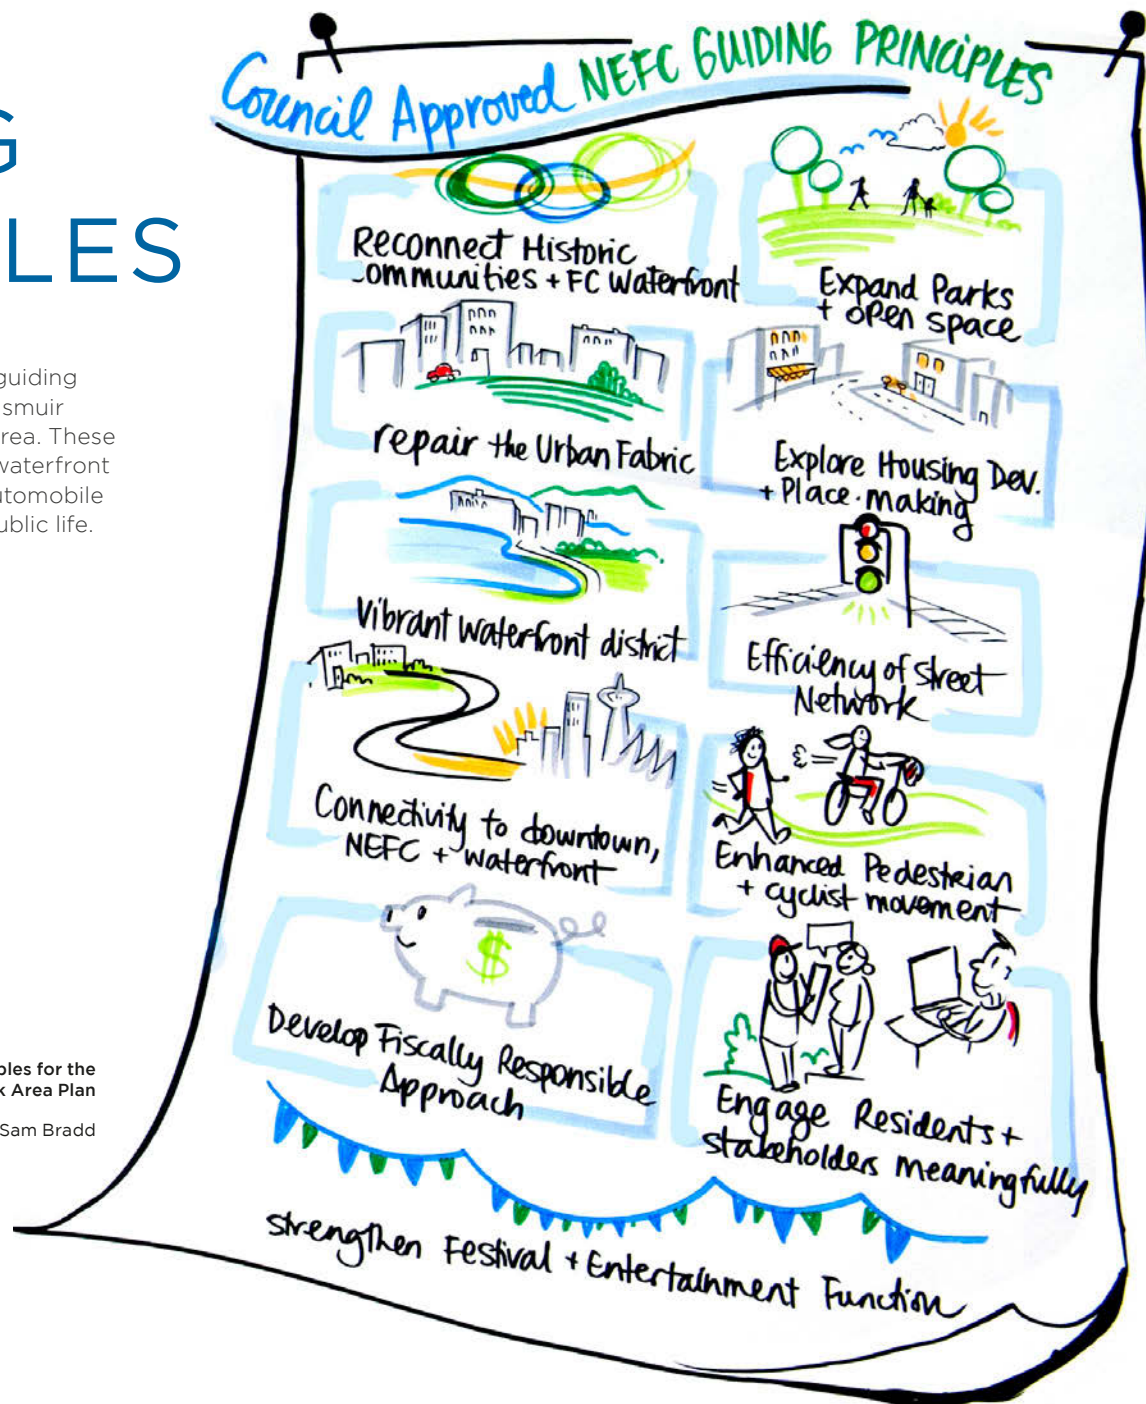 G
LES
guiding
smuir
rea. These
waterfront
utomobile
ublic life.
ples for the
k Area Plan
Sam Bradd
Council Approved NEFC GUIDING PRINCIPLES
Reconnect Historic
ommunities + FC Waterfront
Expand Parks
+ open space
repair the Urban Fabric
Explore Housing Dev.
+ Place-making
Vibrant waterfront district
Efficiency of Street
Network
Connectivity to downtown,
NEFC + waterfront
Enhanced Pedestrian
+ cyclist movement
$
Develop Fiscally Responsible
Approach
Engage Residents +
stakeholders meaningfully
strengthen Festival + Entertainment Function